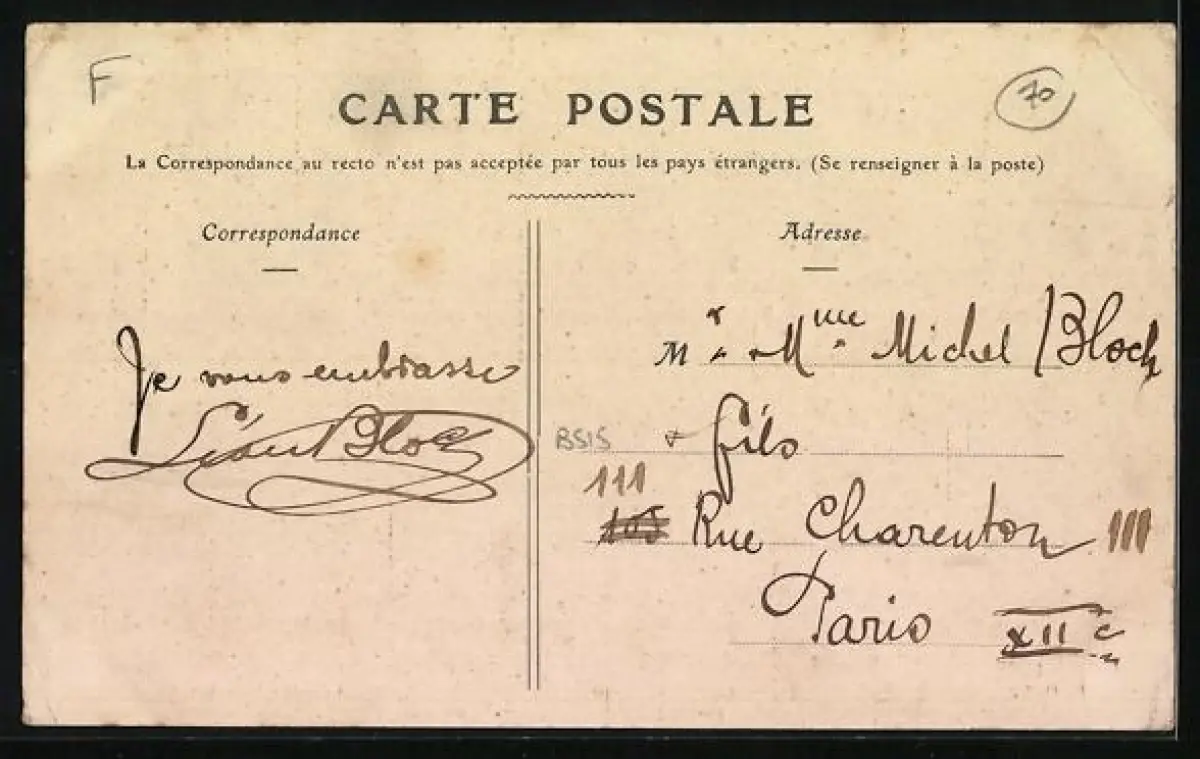 F
70
CARTE POSTALE
La Correspondance au recto n'est pas acceptée par tous les pays étrangers. (Se renseigner à la poste)
Correspondance
Je vous embrasse
Bloch
Adresse
Mr & Mme Michel Bloch
BS15
& fils
111
105 Rue Charenton 111
Paris XIIe